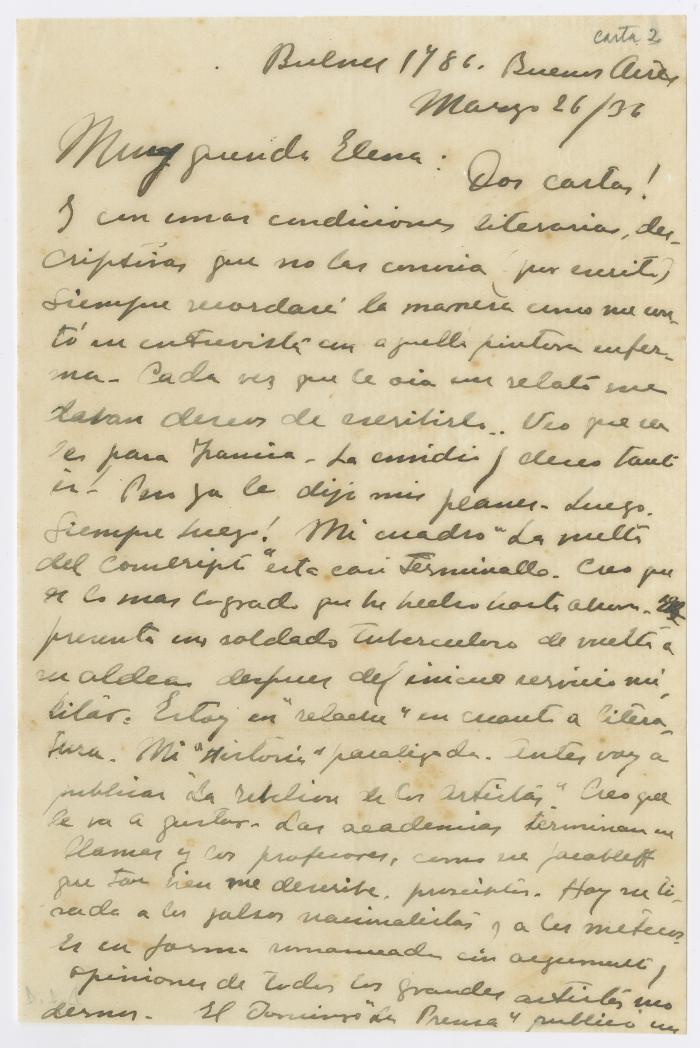 carta 2
Bulnes 1786. Buenos Aires
Marzo 26/36
Muy querida Elena:
Dos cartas!
Y con unas condiciones literarias, des-
criptivas que no las conocia (por escrito)
Siempre recordaré la manera como me con-
tó su entrevista con aquella pintora enfer-
ma. Cada vez que le oia un relato me
daban deseos de escribirlo.. Veo que
es para Francia. La envidio y deseo tanto
ir! Pero ya le dije mis planes. Luego.
Siempre luego! Mi cuadro "La vuelta
del Conscripto" esta casi terminado. Creo que
es lo mas logrado que he hecho hasta ahora. Re
presenta un soldado tuberculoso de vuelta a
su aldea despues del inicuo servicio mi-
litar. Estoy en "relache" en cuanto a litera-
tura. Mi "Historia" paralizada. Antes voy a
publicar "La rebelion de los artistas." Creo que
le va a gustar. Las academias terminan en
llamas y los profesores, como ese
que tan bien me describe, proscriptos. Hay su ti-
rada a los falsos nacionalistas y a los metecos.
Es en forma romanceada con argumento y
opiniones de todos los grandes artistas mo
dernos. El Domingo "La Prensa" publicó un